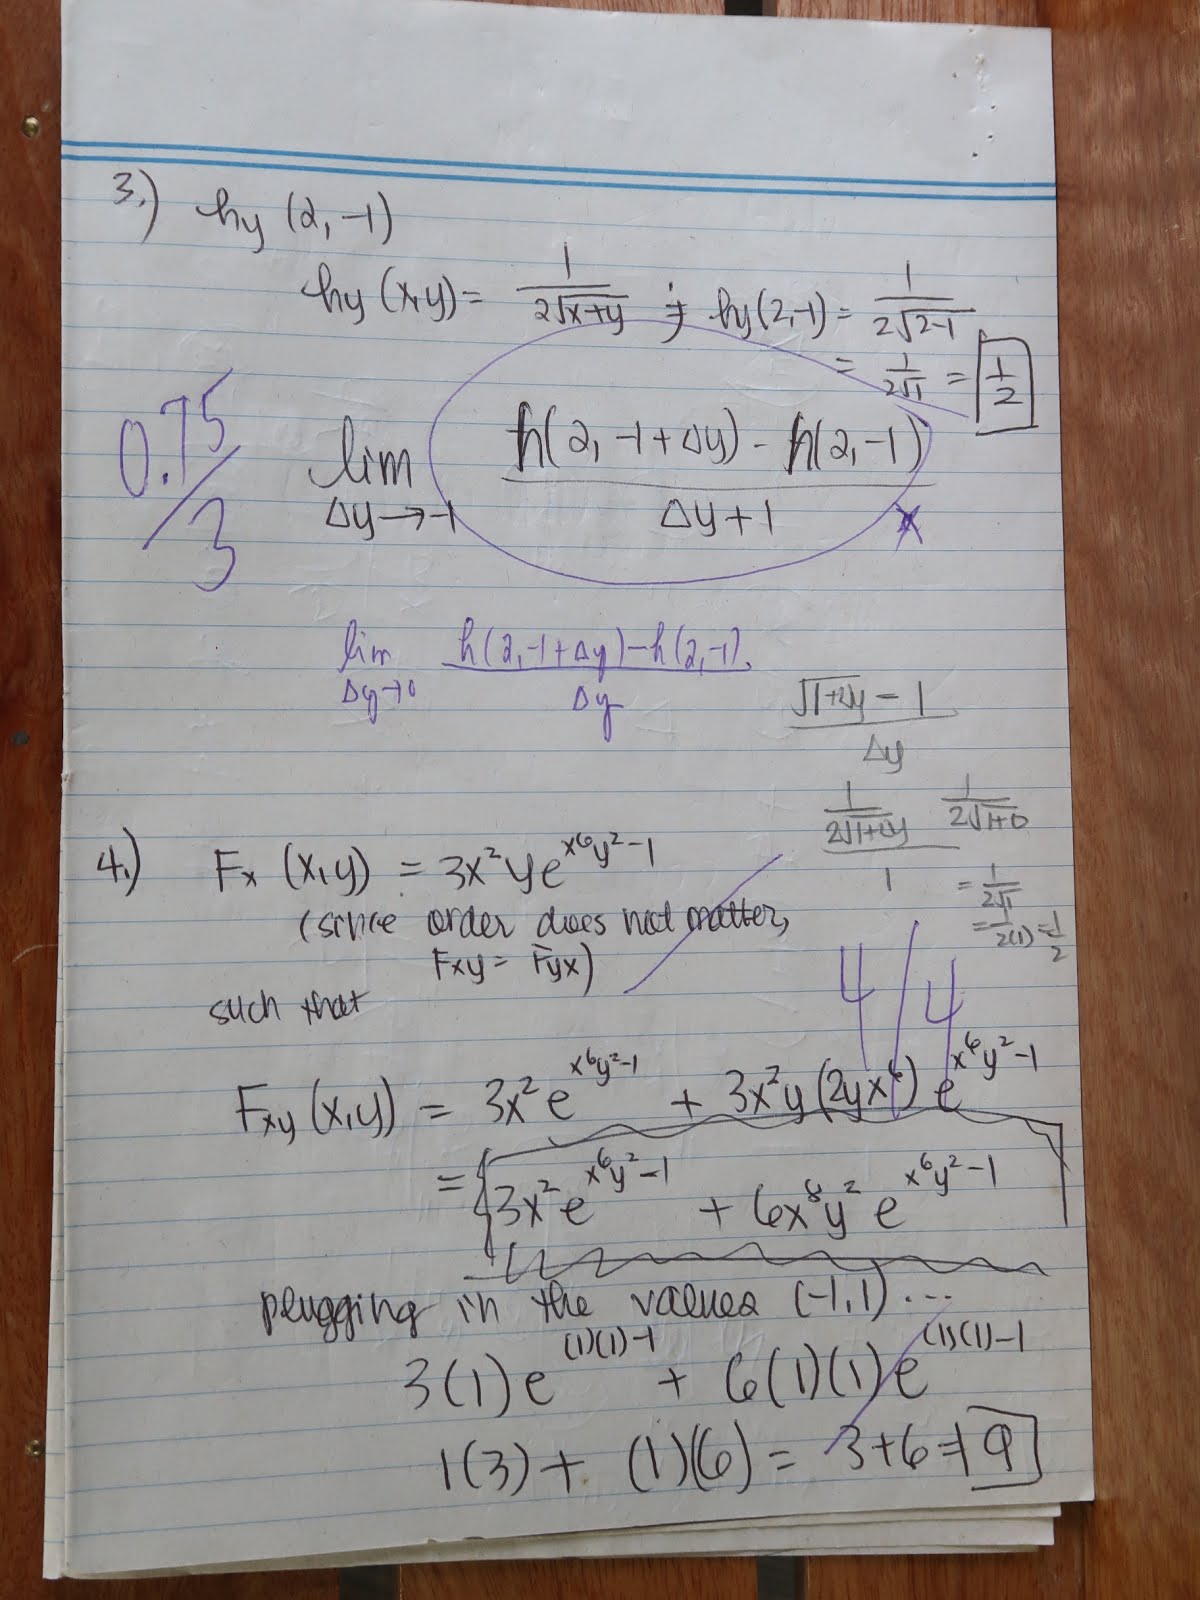 3.) hy (2, -1)
hy (x,y) = 1/(2√x+y) ; hy(2,-1) = 1/(2√2-1)
= 1/(2√1) = 1/2
0.75/3
lim Δy→-1 (h(2, -1+Δy) - h(2, -1))/(Δy+1) x
lim Δy→0 (h(2,-1+Δy)-h(2,-1))/Δy
(√1+Δy - 1)/Δy
(1/(2√1+Δy))/1 1/(2√1+0)
= 1/(2√1)
= 1/2(1) = 1/2
4.) Fx (x,y) = 3x²ye^(x⁶y²-1)
(since order does not matter,
Fxy = Fyx)
4/4
such that
Fxy (x,y) = 3x²e^(x⁶y²-1) + 3x²y(2yx⁶)e^(x⁶y²-1)
= 3x²e^(x⁶y²-1) + 6x⁸y²e^(x⁶y²-1)
plugging in the values (-1,1)...
3(1)e^((1)(1)-1) + 6(1)(1)e^((1)(1)-1)
1(3) + (1)(6) = 3+6 = 9